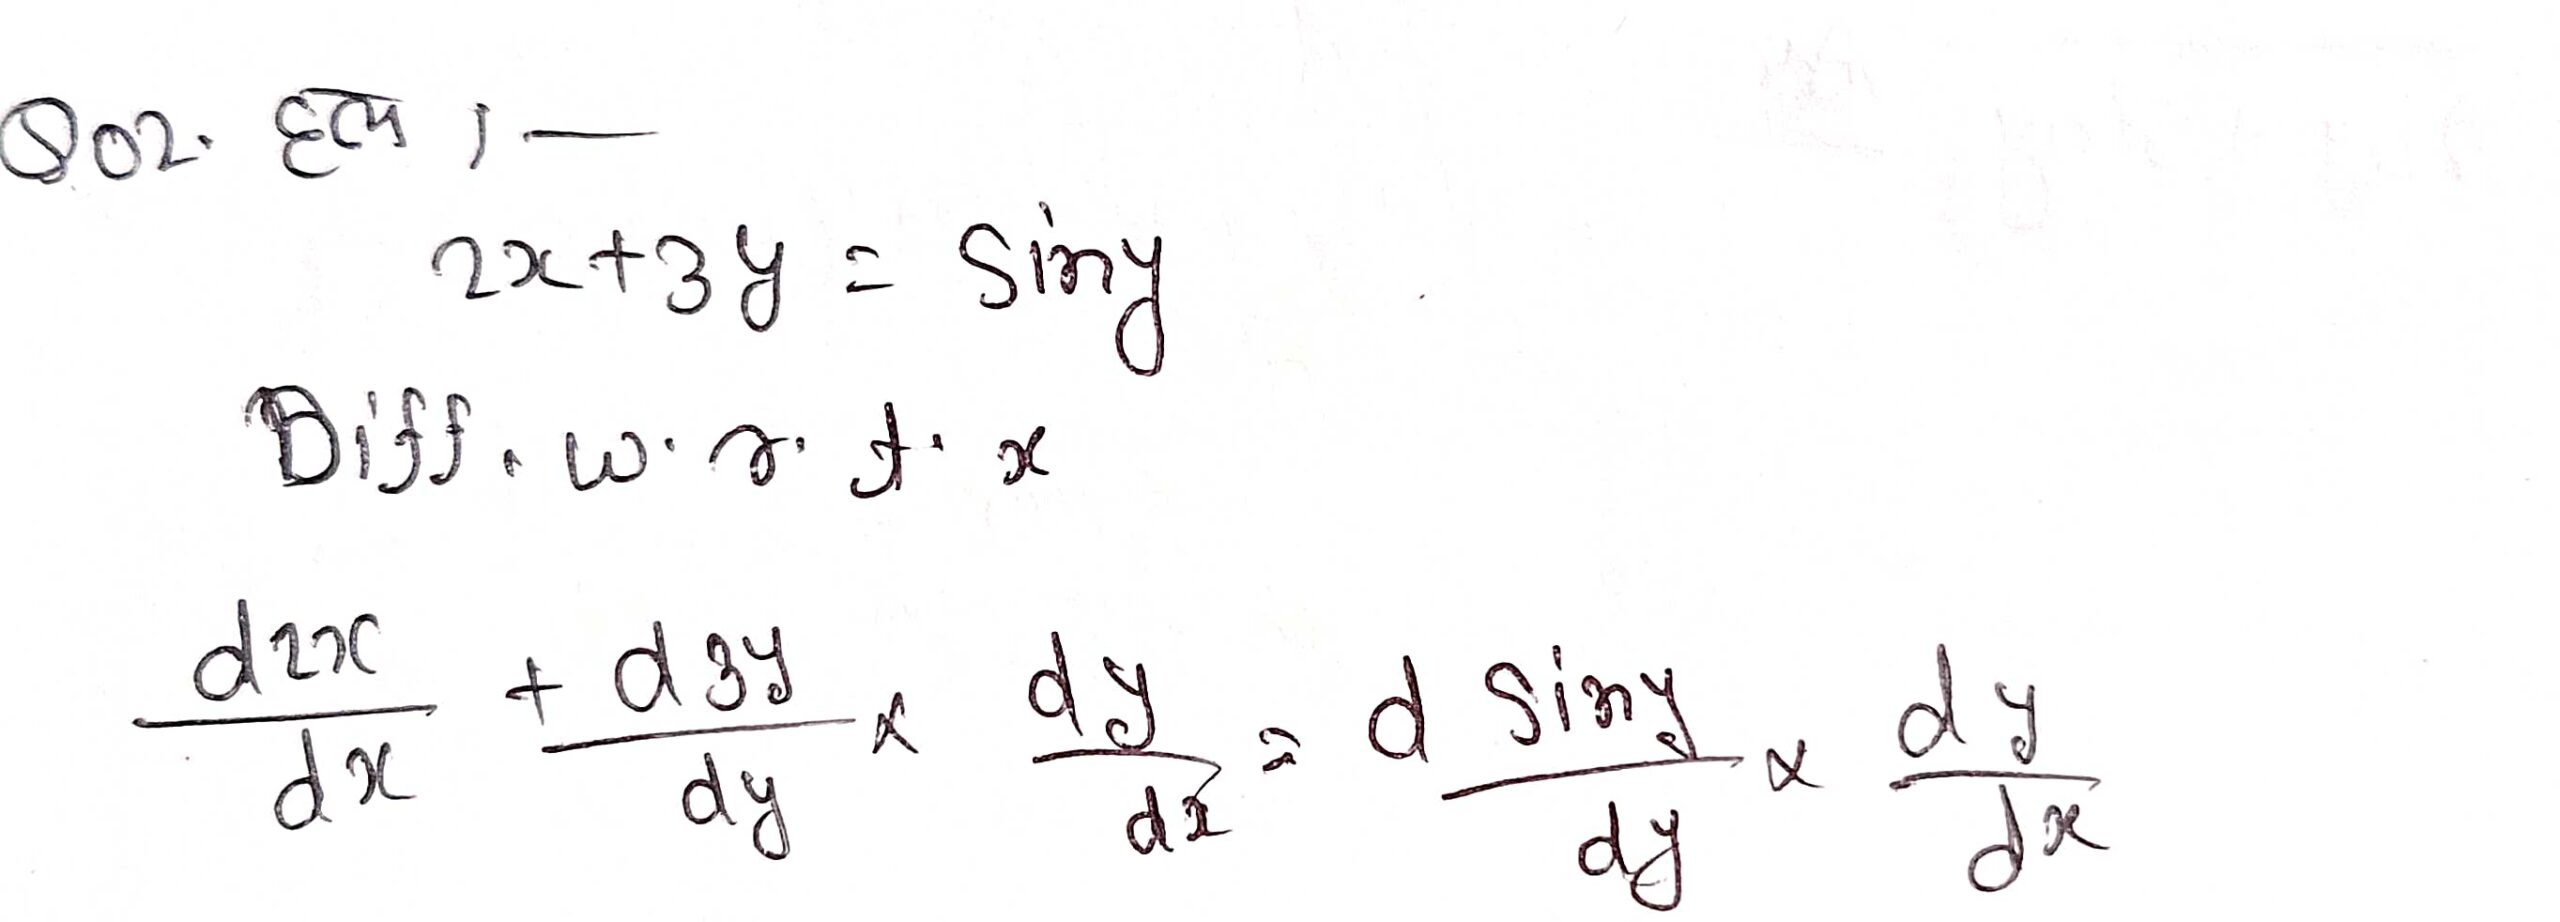 Q02. हल ; —
2x+3y = Siny
Diff. w.r.t. x
d2x/dx + d3y/dy × dy/dx = d Siny/dy × dy/dx